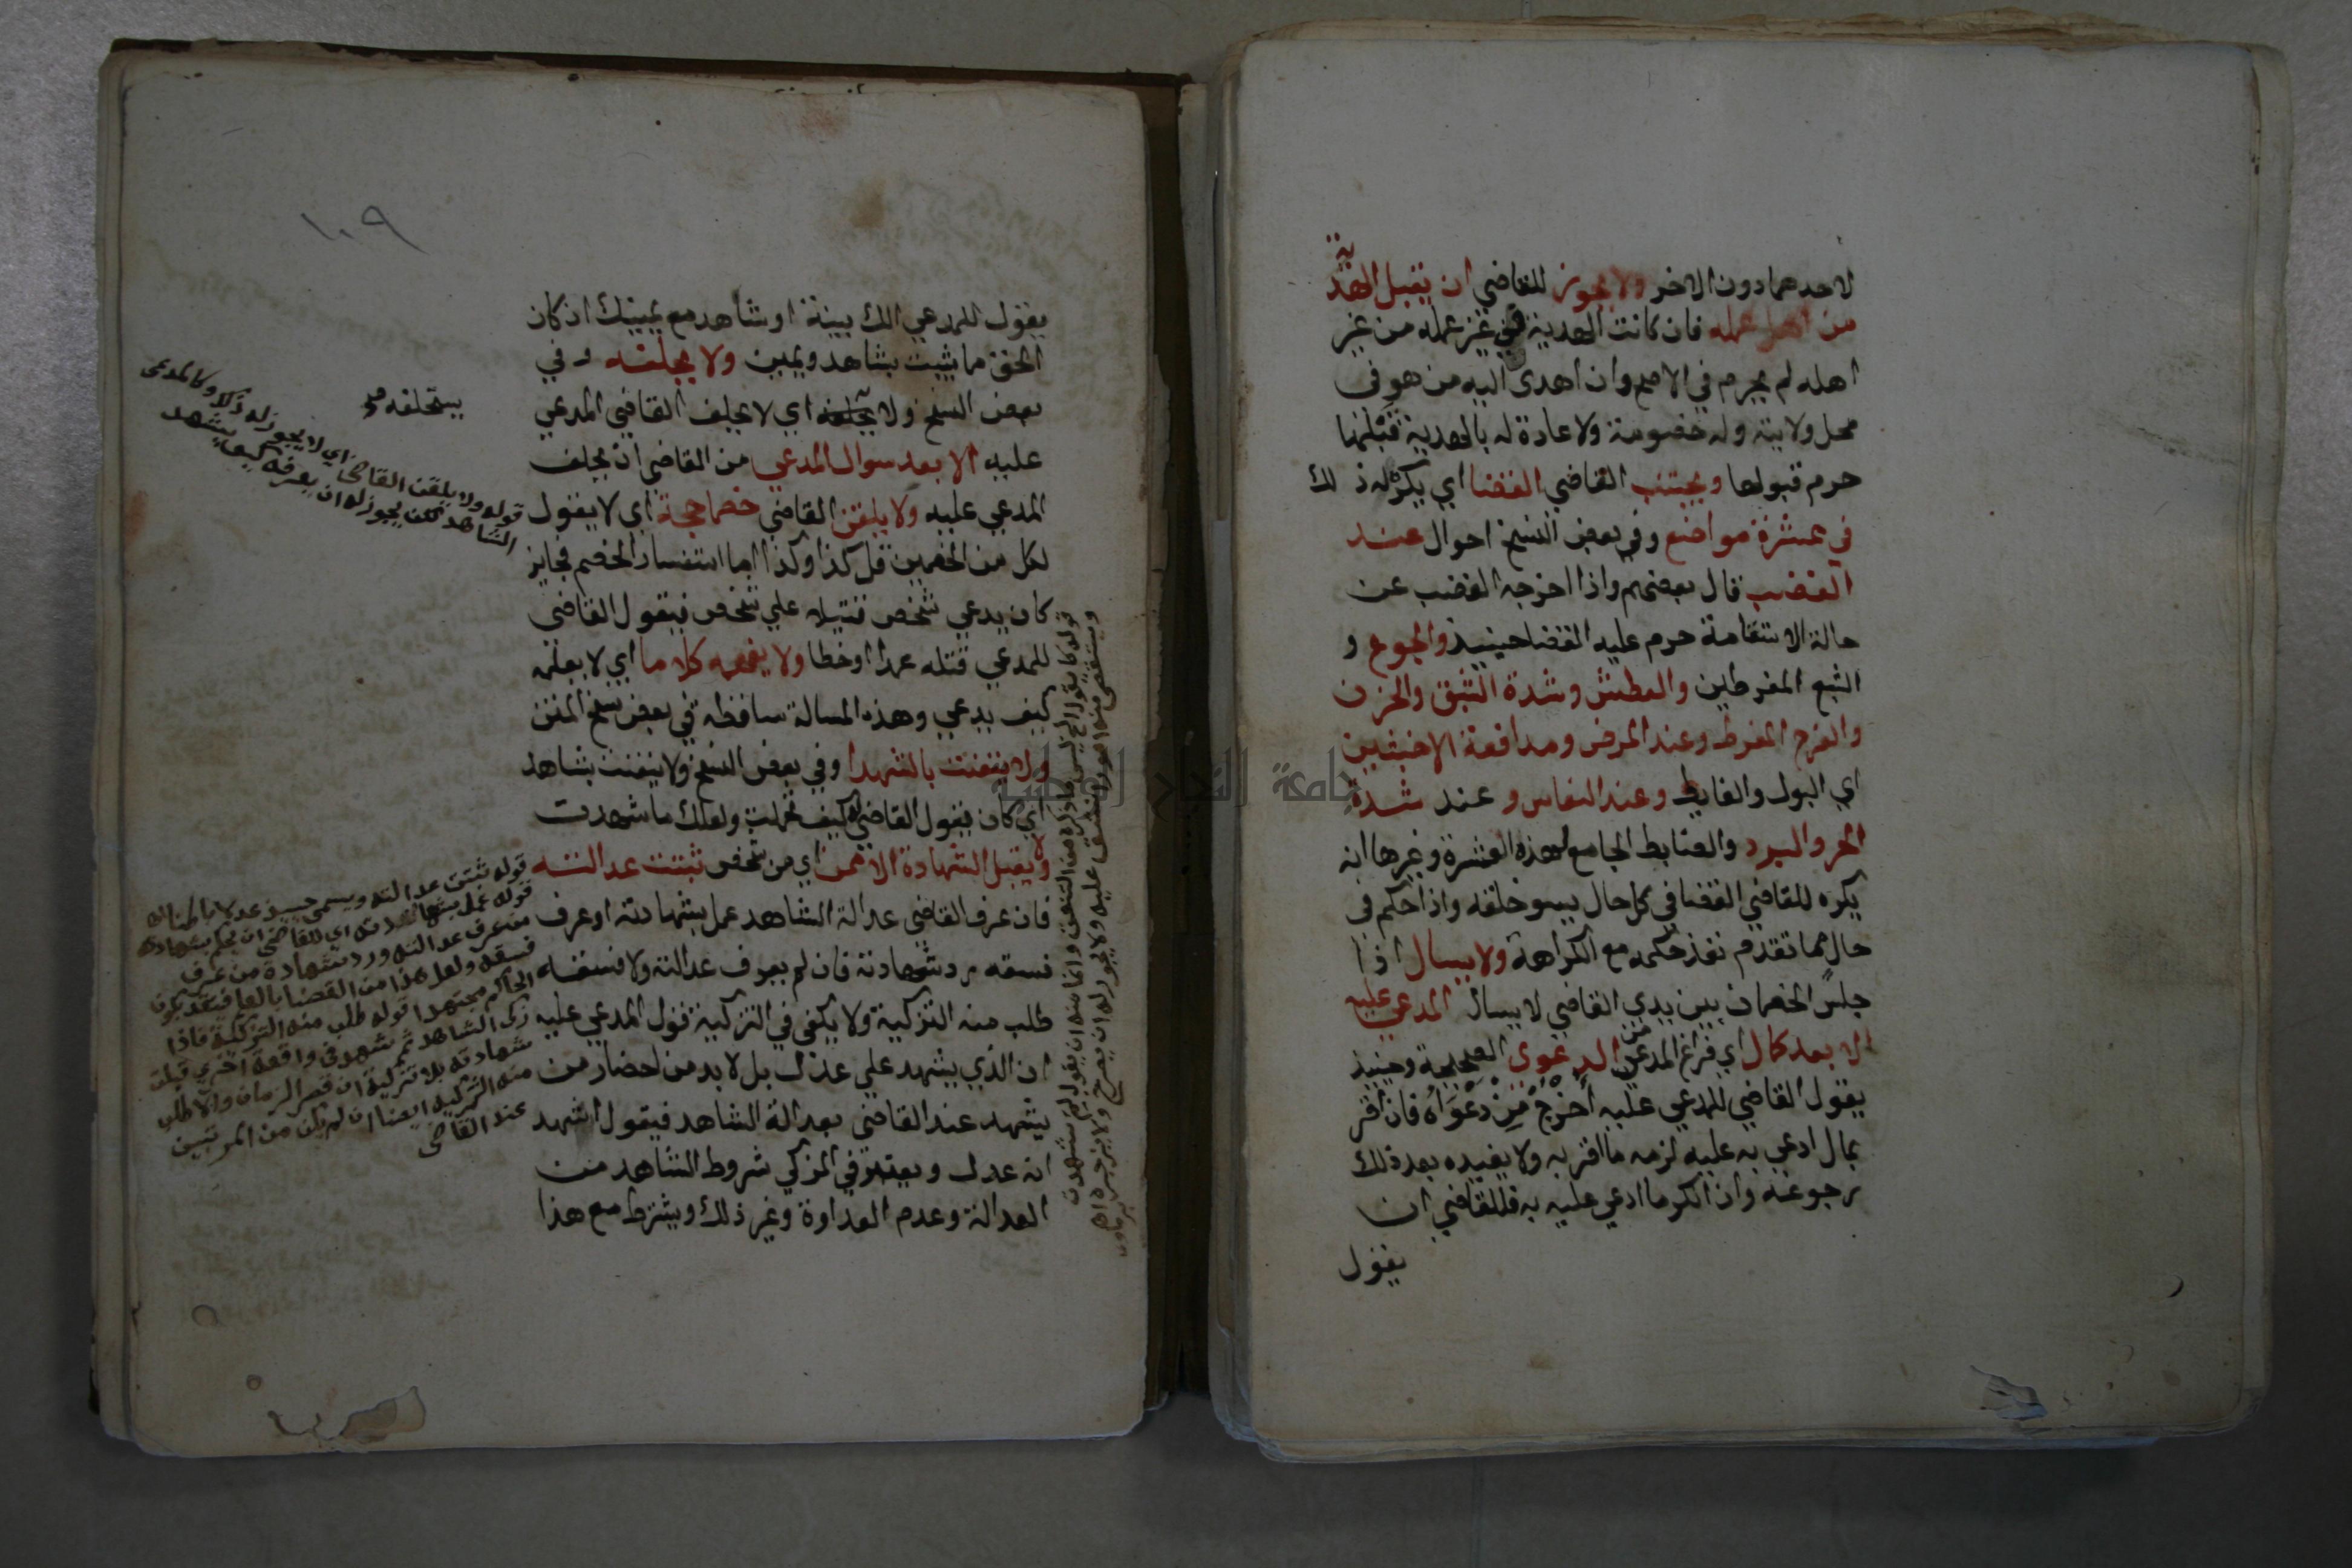 لاحدهما دون الاخر ولا يجوز للقاضي ان يقبل الهدية
من اهل عمله فان كانت الهدية في غير عمله من غير
اهله لم يحرم في الاصح وان اهدى اليه من هو في
محل ولايته وله خصومة ولا عادة له بالهدية قبلها
حرم قبولها ويجتنب القاضي القضا اي يكره له ذلك
في عشرة مواضع وفي بعض النسخ احوال عند
الغضب قال بعضهم واذا اخرجه الغضب عن
حالة الاستقامة حرم عليه القضا حينيذ والجوع و
الشبع المفرطين والعطش وشدة الشبق والحزن
والفرح المفرط وعند المرض ومدافعة الاخبثين
اي البول والغايط وعند النعاس وعند شدة
الحر والبرد والضابط الجامع لهذه العشرة وغيرها انه
يكره للقاضي القضا في كل حال يسو خلقه واذا حكم في
حال مما تقدم نفذ حكمه مع الكراهة ولا يسال اذا
جلس الخصمان بين يدي القاضي لا يسال المدعي عليه
الا بعد كمال اي فراغ المدعي من الدعوى الصحيحة وحينيذ
يقول القاضي للمدعي عليه اخرج من دعواه فان اقر
بمال ادعي به عليه لزمه ما اقر به ولا يفيده بعد ذلك
رجوعه وان انكر ما ادعي عليه به فللقاضي ان
يقول
١٠٩
يقول للمدعي الك بينة او شاهد مع يمينك ان كان
الحق مما يثبت بشاهد ويمين ولا يحلفه وفي
بعض النسخ ولا يستحلفه اي لا يحلف القاضي المدعي
عليه الا بعد سوال المدعي من القاضي ان يحلف
المدعي عليه ولا يلقن القاضي خصما حجة اي لا يقول
لكل من الخصمين قل كذا وكذا اما استفسار الخصم فجايز
كان يدعي شخص قتيلا علي شخص فيقول القاضي
للمدعي قتله عمدا او خطا ولا يفهمه كلاما اي لا يعلمه
كيف يدعي وهذه المسالة ساقطة في بعض نسخ المتن
ولا يتعنت بالشهدا وفي بعض النسخ ولا يتعنت بشاهد
اي كان يقول القاضي له كيف تحملت ولعلك ما شهدت
ولا يقبل الشهادة الا ممن اي من شخص ثبتت عدالته
فان عرف القاضي عدالة الشاهد عمل بشهادته او عرف
فسقه رد شهادته فان لم يعرف عدالته ولا فسقه
طلب منه التزكية ولا يكفي في التزكية قول المدعي عليه
ان الذي يشهد علي عدل بل لا بد من احضار من
يشهد عند القاضي بعدالة الشاهد فيقول اشهد
انه عدل ويعتبر في المزكي شروط الشاهد من
العدالة وعدم العداوة وغير ذلك ويشترط مع هذا
يستحلفه
قوله ولا يلقن القاضي اي لا يجوز له ذلك وكالمدعي
الشاهد لكن يجوز له ان يعرفه كيف يشهد
قوله ثبتت عدالته ويسمى حينيذ عدلا باطنا
قوله عمل بشهادته اي للقاضي ان يحكم بشهادة
من عرف عدالته ورد شهادة من عرف
الحاكم مجتهدا قوله طلب منه التزكية فاذا
زكى الشاهد ثم شهد في واقعة اخرى قبلت
شهادته بلا تزكية ان قصر الزمان والا طلب
منه التزكية ايضا ان لم يكن من المرتبين
عند القاضي
جامعة النجاح الوطنية